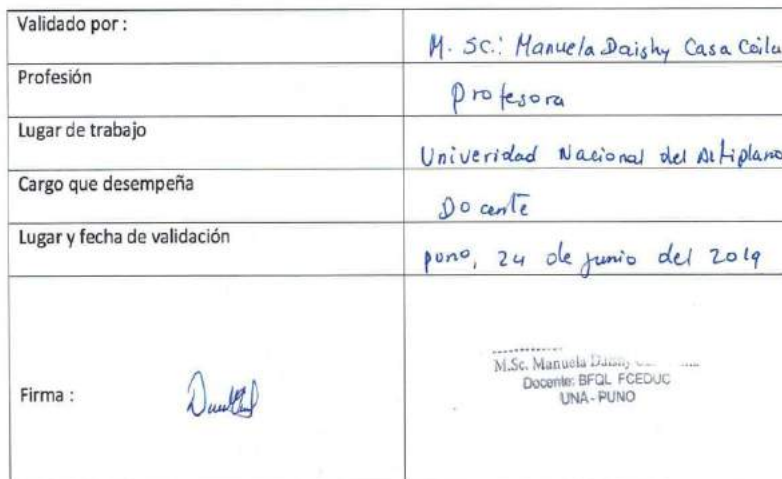 Validado por :
M. SC.: Manuela Daishy Casa Coila
Profesión
Profesora
Lugar de trabajo
Univeridad Nacional del Altiplano
Cargo que desempeña
Docente
Lugar y fecha de validación
puno, 24 de junio del 2019
Firma :
M.Sc. Manuela
Docente: BFQL FCEDUC
UNA - PUNO